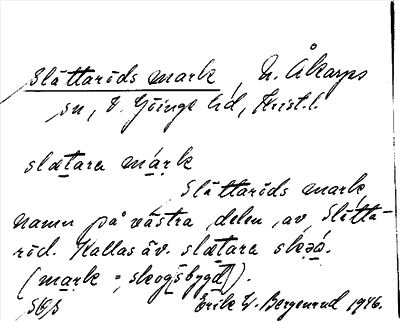 Slättaröds mark, N. Åkarps
sn, V. Göinge hd, Krist. l.
slætara mark
Slättaröds mark,
namn på västra delen av Slätta-
röd. Kallas äv. slætara
(mark = skogsbygd).
Erik W. Bergenrud 1946.